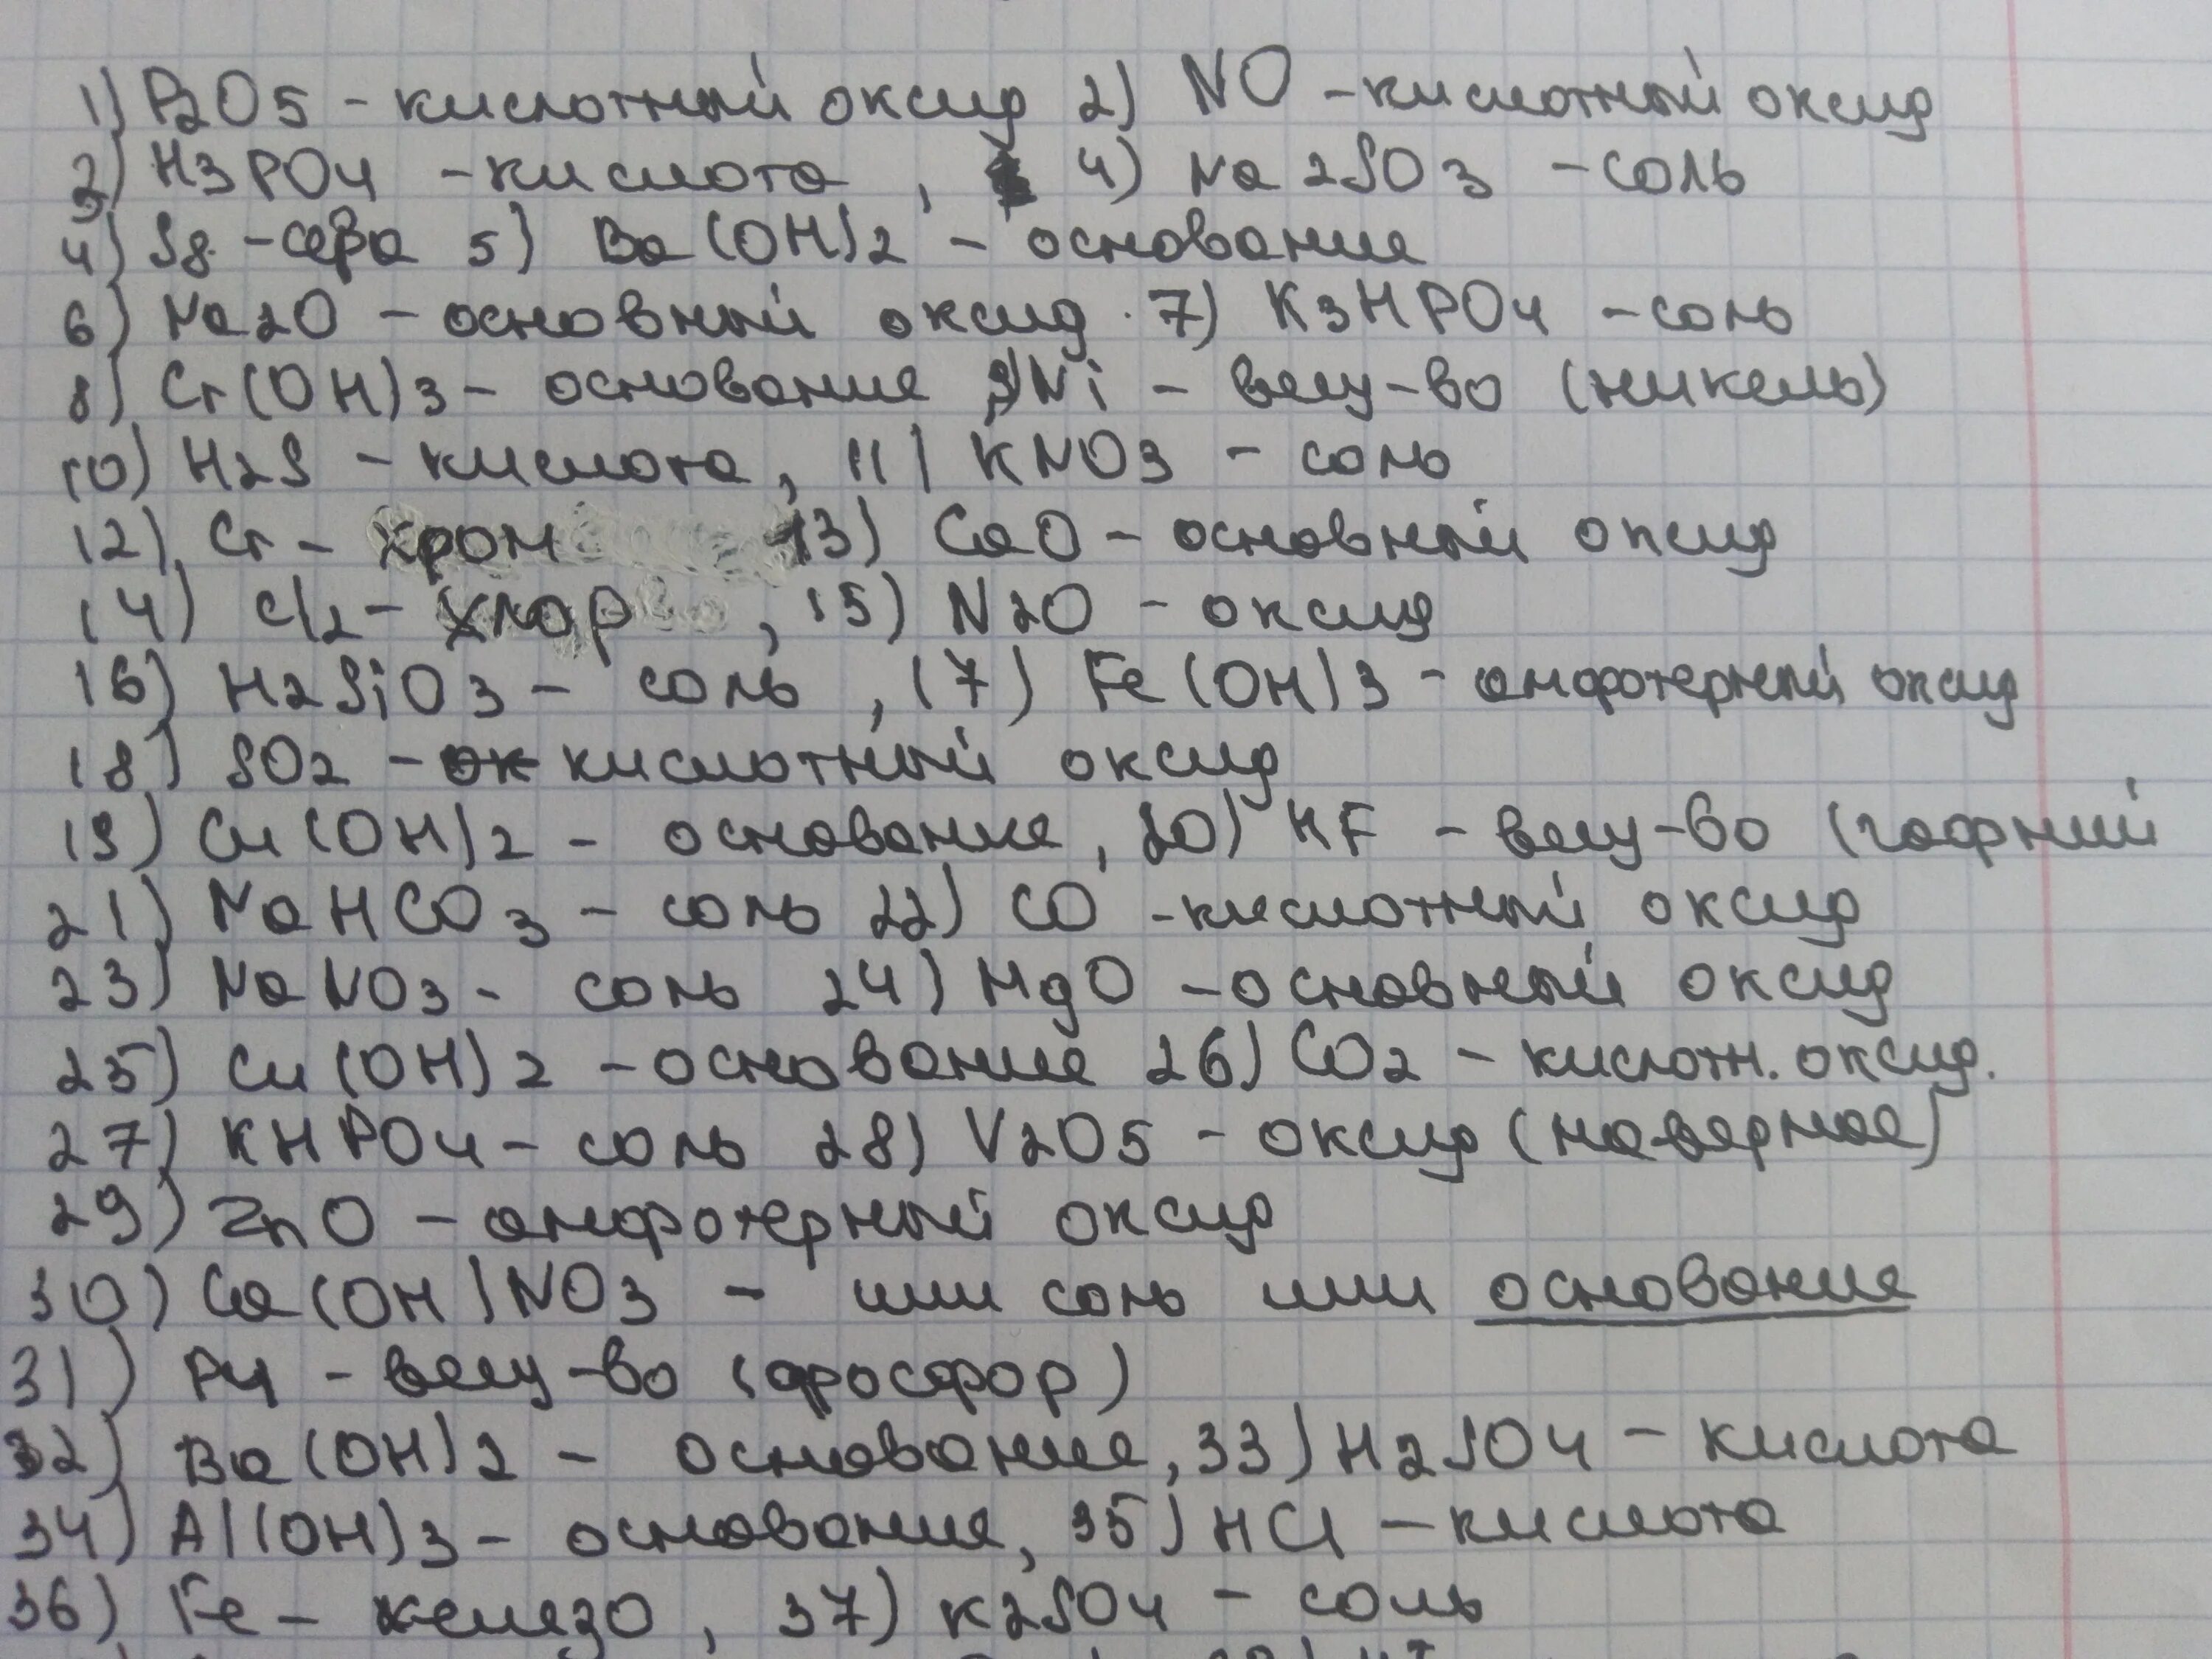 1) P2O5 - кислотный оксид 2) NO - кислотный оксид
3) H3PO4 - кислота, 4) Na2SO3 - соль
4) S8 - сера 5) Ba(OH)2 - основание
6) Na2O - основный оксид. 7) K3HPO4 - соль
8) Cr(OH)3 - основание 9) Ni - вещ-во (никель)
10) H2S - кислота, 11) KNO3 - соль
12) Cr - хром 13) CaO - основный оксид
14) Cl2 - хлор, 15) N2O - оксид
16) H2SiO3 - соль, 17) Fe(OH)3 - амфотерный оксид
18) SO2 - ок кислотный оксид
19) Cu(OH)2 - основание, 20) HF - вещ-во (гафний
21) NaHCO3 - соль 22) CO - кислотный оксид
23) NaNO3 - соль 24) MgO - основный оксид
25) Cu(OH)2 - основание 26) CO2 - кислотн. оксид.
27) KHPO4 - соль 28) V2O5 - оксид (наверное)
29) ZnO - амфотерный оксид
30) Ca(OH)NO3 - или соль или основание
31) P4 - вещ-во (фосфор)
32) Ba(OH)2 - основание, 33) H2SO4 - кислота
34) Al(OH)3 - основание, 35) HCl - кислота
36) Fe - железо, 37) K2SO4 - соль